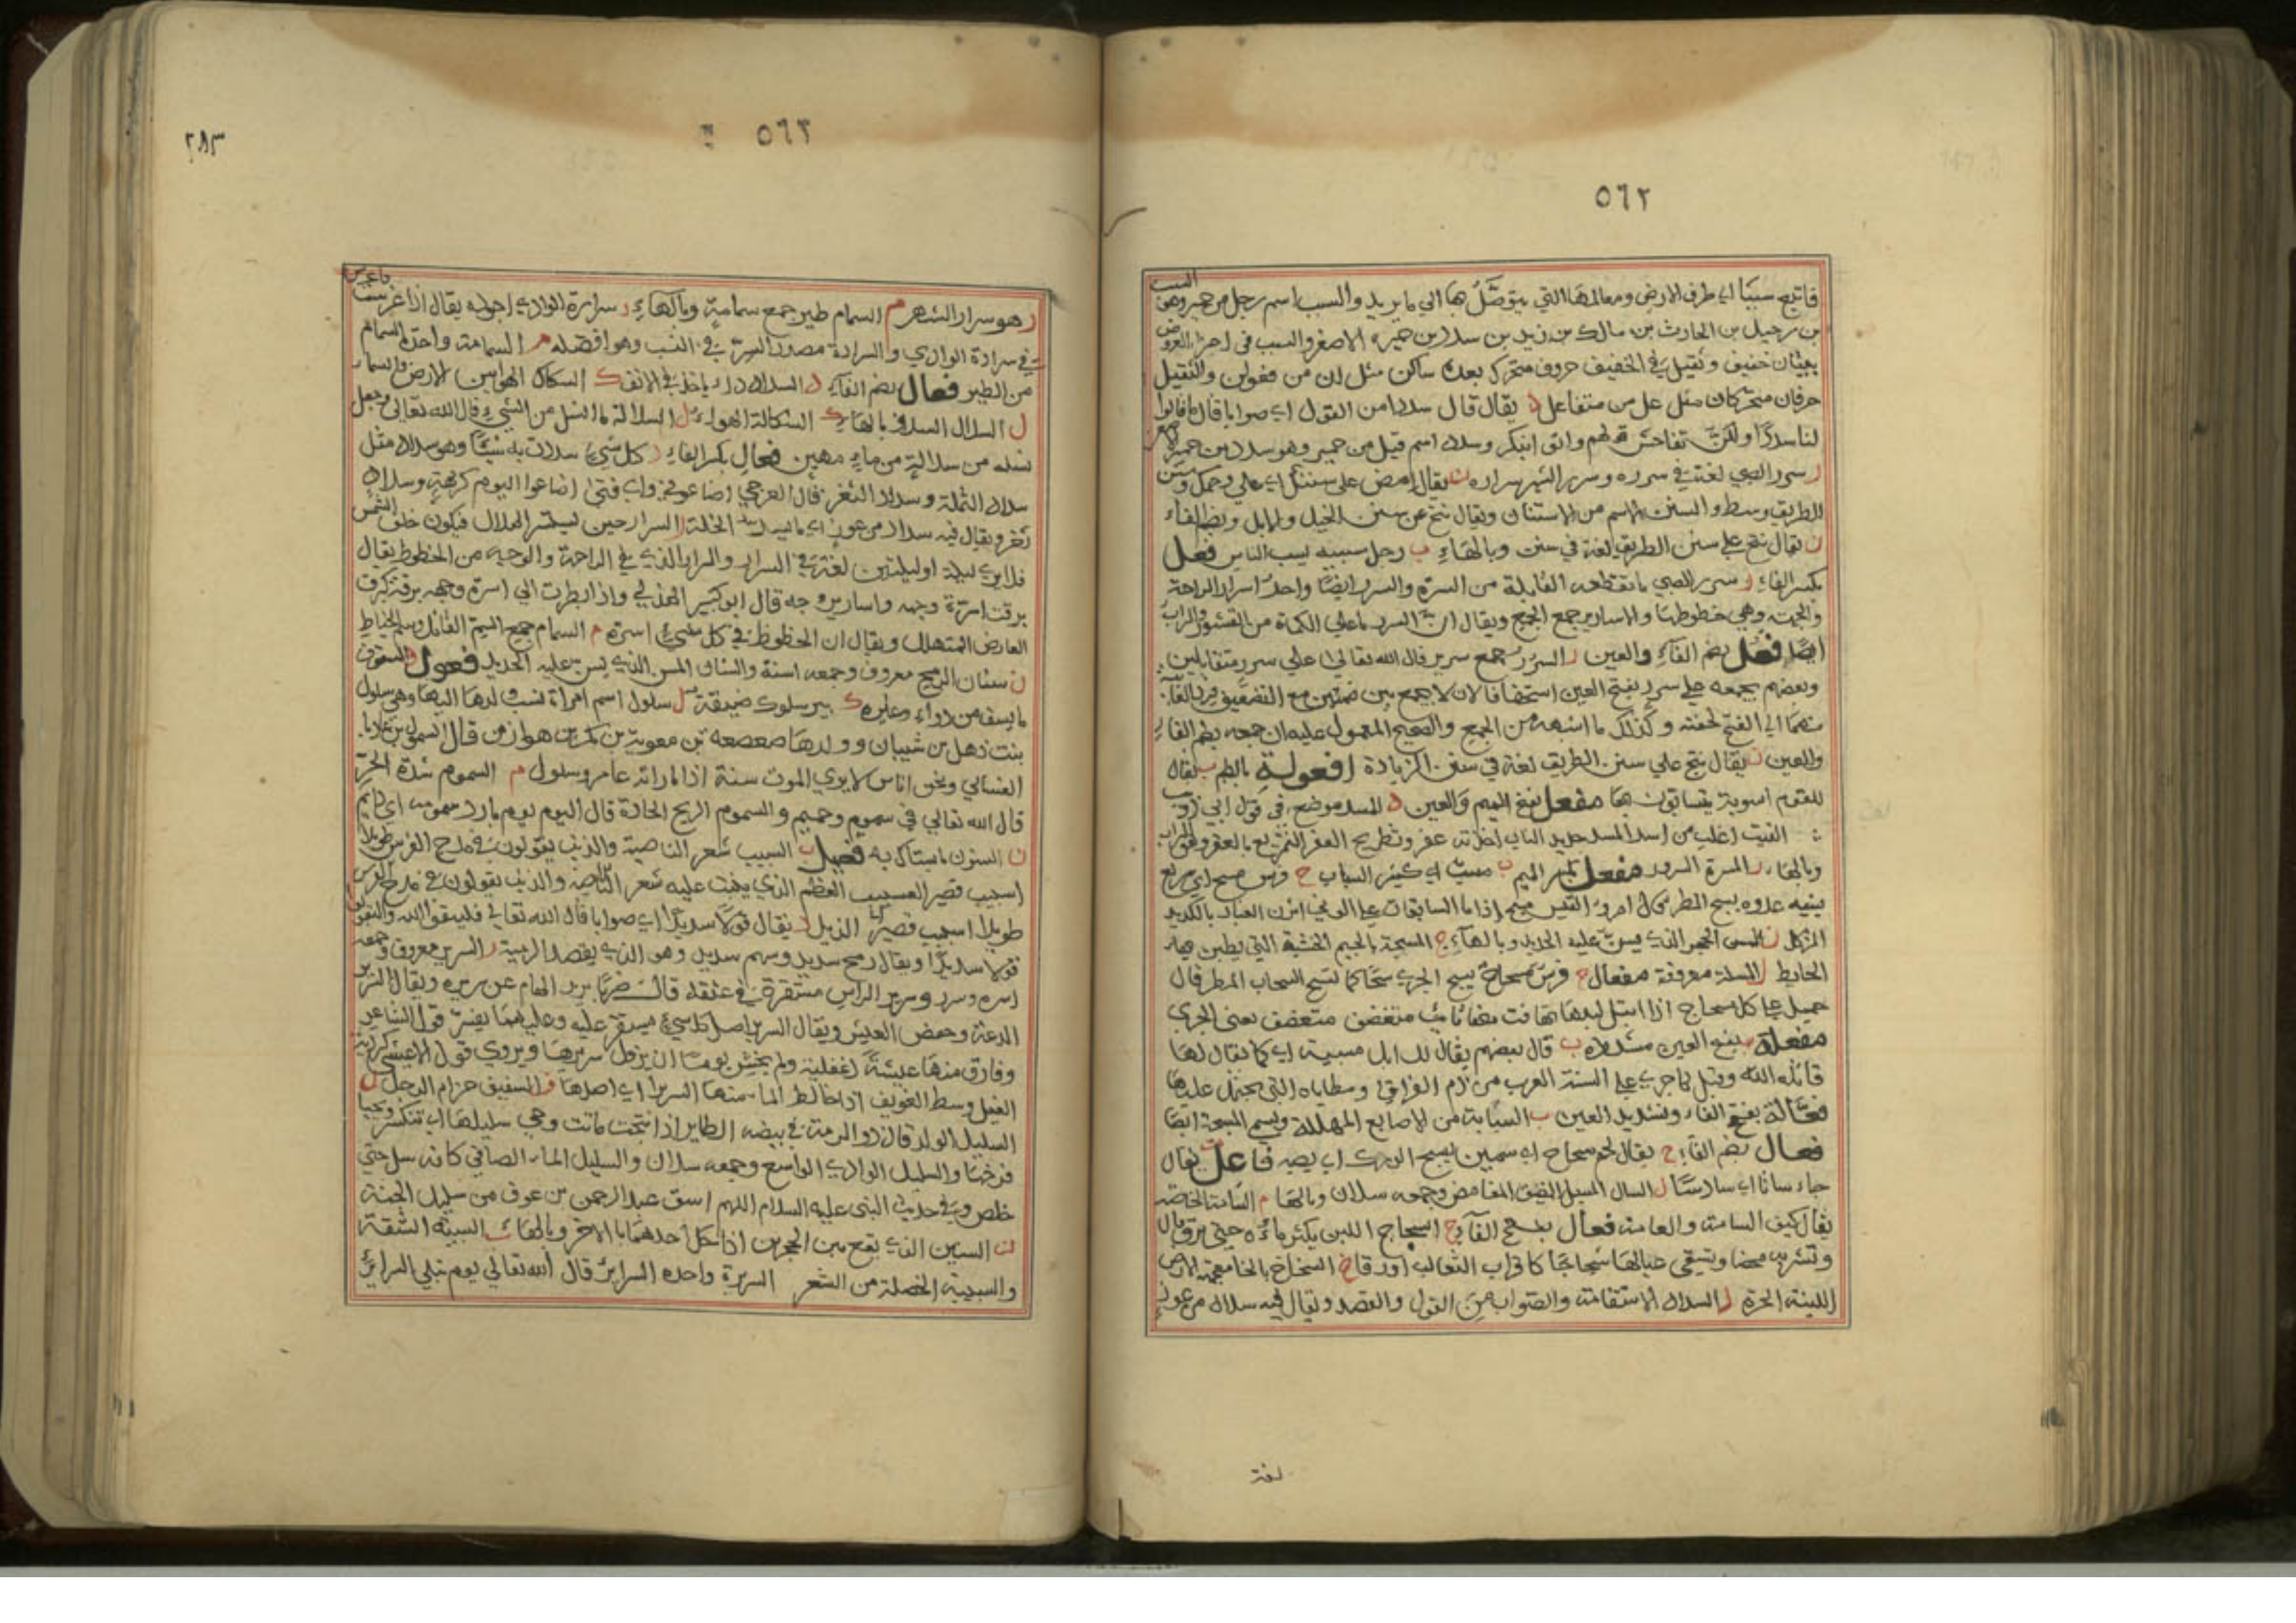 ٥٦٢
فاتبع سببا اي طرف الارض ومعالمها التي يتوصل بها الي ما يريد والسبب اسم رجل من حمير وهو السبب
بن رحيل بن الحارث بن مالك بن زيد بن سدد بن حمير الاصغر والسبب في اجزاء العروض
سببان خفيف وثقيل في الخفيف حروف متحرك بعده ساكن مثل لن من فعولن والثقيل
حرفان متحركان مثل عل من متفاعل د يقال قال سددا من القول اي صوابا قال ما قالوا
لنا سددا ولكن تفاحش قولهم واتى ابنكر وسدد اسم قيل من حمير وهو سدد بن حمير
ر سرر الصبي لغة في سرره وسرر الشهر سراره ن يقال امض على سننك اي علي وجهك وسنن
الطريق وسطه والسنن الاسم من الاستنان ويقال تنح عن سنن الخيل والابل وبضم الفاء
ن يقال تنح علي سنن الطريق لغة في سنن وبالهاء ب رجل سببه يسب الناس فعل
بكسر الفاء ر سرر الصبي ما تقطعه القابلة من السرة والسرر ايضا واحد اسرار الراحة
والجبهة وهي خطوطها والاسارير جمع الجمع ويقال ان السرر ما علي الكماة من القشور والتراب
ايضا فعل بضم الفاء والعين ر السرر جمع سرير قال الله تعالى علي سرر متقابلين
وبعضهم يجمعه علي سرر بفتح العين استخفافا لان لا جمع بين ضمتين مع التضعيف
منهما الي الفتح لخفته وكذلك ما اشبهه من الجمع والصحيح المعمول عليه ان جمعه بضم الفاء
والعين ن يقال تنح علي سنن الطريق لغة في سنن الزيادة افعولة بالضم ب يقال
للقوم اسبوبة يتسابون بها مفعل بفتح الميم والعين د المسد موضع في قول ابي ذؤيب
الفيت اغلب من اسد المسد حديد الناب اخذته عفر وتطريح العفر
وبالهاء ر المسرة السرور مفعل بكسر الميم ب مسب اي كثير السباب ح فرس مسح اي سريع
يشبه عدوه بسح المطر قال امرؤ القيس مسح اذا ما السابحات علي الونى اثرن الغبار بالكديد
المركل ن المسن الحجر الذي يسن عليه الحديد وبالهاء ج المسجة بالجيم الخشبة التي يطين بها
الحايط ل المسلة معروفة مفعال ح فرس مسحاح يسح الجري سحا كما تسح السحاب المطر قال
جميل علي كل مسحاح اذا ابتل لبدها
مفعلة بفتح العين مشددة ب قال بعضهم يقال للابل مسببة اي كما يقال لها
قاتله الله وقيل لما جري علي السنة العرب من ذم الفراق ومطاياه التي يحتمل عليها
فعالة بفتح الفاء وتشديد العين ب السبابة من الاصابع المهللة ويسمى المسبحة ايضا
فعال بضم الفاء ح يقال لحم سحاح اي سمين يسح الودك اي يصبه فاعل ت يقال
جاء ساتا اي سادسا ل السال المسيل الضيق الغامض وجمعه سلان وبالهاء م السامة الخاصة
يقال كيف السامة والعامة فعال بفتح الفاء ج السجاج اللبن يكثر ماؤه حتى يرق قال
وتشربه محضا وتسقي عيالها سجاجا كاقراب الثعالب اورقا خ السخاخ بالخا معجمة الارض
اللينة الحرة د السداد الاستقامة والصواب من القول والقصد ويقال فيه سداد من عوز
لغة
٢٨٣
٥٦٣
ر هو سرار الشهر م السمام طير جمع سمامة وبالهاء ر سرارة الوادي اجوله يقال اذا غرست فاغرس
في سرارة الوادي والسرارة مصدر السر في النسب وهو افضله م السمامة واحدة السمام
من الطير فعال بضم الفاء د السداد داء ياخذ في الانف ك السكاك الهوا بين الارض والسماء
ل السلال السل وبالهاء ك السكاكة الهواء ل السلالة ما انسل من الشيء قال الله تعالى وجعل
نسله من سلالة من ماء مهين فعال بكسر الفاء د كل شيء سددت به شيئا وهو سداد مثل
سداد الثلمة وسداد الثغر قال العرجي اضاعوني واي فتى اضاعوا ليوم كريهة وسداد
ثغر ويقال فيه سداد من عوز اي ما يسد الخلة ر السرار حين يستسر الهلال فيكون خلف الشمس
فلا يري ليلة او ليلتين لغة في السرار والسرار الذي في الراحة والوجه من الخطوط يقال
برقت اسرة وجهه واسارير وجهه قال ابو كبير الهذلي واذا نظرت الي اسرة وجهه برقت كبرق
العارض المتهلل ويقال ان الخطوط في كل شيء اسرة م السمام جمع السم القاتل وسم الخياط
ن سنان الرمح معروف وجمعه اسنة والسنان المسن الذي يسن عليه الحديد فعول ف السفوف
ما يسف من دواء وغيره ك بير سلوك ضيقة ل سلول اسم امراة نسب ولدها اليها وهي سلول
بنت ذهل بن شيبان وولدها صعصعة بن معوية بن بكر بن هوازن قال السموال بن عاديا
الغساني ونحن اناس لا يري الموت سنة اذا ما راته عامر وسلول م السموم شدة الحر
قال الله تعالي في سموم وحميم والسموم الريح الحادة قال اليوم يوم بارد سمومه اي دايم
ن السنون ما يستاك به فعيل ب السبيب شعر الناصية والذنب يقولون في مدح الفرس طويل
اسبيب قصير العسيب العظم الذي ينبت عليه شعر الناصية والذنب يقولون في مدح الفرس
طويل اسبيب قصير الذيل د يقال قولا سديدا اي صوابا قال الله تعالى فليتقوا الله وليقولوا
قولا سديدا ويقال رمح سديد وسهم سديد وهو الذي يقصد الرمية ر السرير معروف وجمعه
اسرة وسرر وسرير الراس مستقره في عنقه قال ضربا يزيل الهام عن سريره ويقال السرير
الدعة وخفض العيش ويقال السرير اصل كل شيء يستقر عليه وعليهما يفسر قول الشاعر
وفارق منها عيشة غفلية ولم يخش يوما ان يزول سريرها ويروي قول الاعشى كبردية
الغيل وسط الغريف اذا خالط الما منها السريرا اي اصلها ف السفيف حزام الرحل ل
السليل الولد قال ذو الرمة في بيضه الطاير اذا نتجت ماتت وحي سليلها اي تنكسر ويحيا
فرخها والسليل الوادي الواسع وجمعه سلان والسليل الماء الصافي كانه سل حتي
خلص وفي حديث النبي عليه السلام اللهم اسق عبد الرحمن بن عوف من سليل الجنة
ن السنين الذي يقع من الحجرين اذا حك احدهما بالاخر وبالهاء ب السبيبة الشقة
والسبيبة الخصلة من الشعر السريرة واحدة السراير قال الله تعالي يوم تبلي السراير